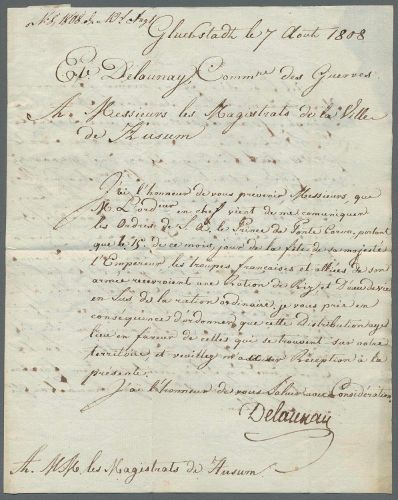 Gluckstadt le 7 Aout 1808
Et. Delaunay, Comm.re des Guerres
A. Messieurs les Magistrats de la Ville
de Husum
J'ai l'honneur de vous prevenir Messieurs, que
M. L'ord.eur en chef vient de me comuniquer
les Ordres de S. A. le Prince de Ponte Corvo, portant
que le 15 de ce mois, jour de la fête de sa majesté
l'Empereur les troupes francaises et alliées de son
armée recevroient une Ration de Riz et D'eau de vie
en Sus de la ration ordinaire, je vous prie en
conséquence d'ordonner que cette Distribution aye
lieu en faveur de celles qui se trouvent sur votre
territoire, et veuillez m'accuser Réception de la
présente.
J'ai l'honneur de vous Saluer avec Considération
Delaunay
A. MM. les Magistrats de Husum